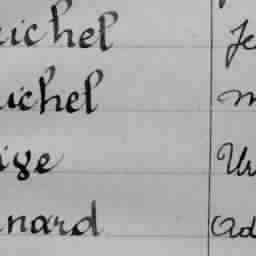 ichel Je
uchel m
ise Ur
nard Ad